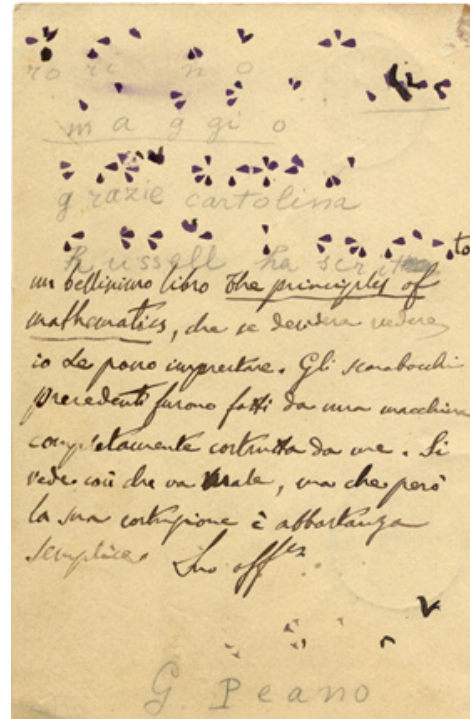 to ri no
maggio
grazie cartolina
Russell ha scrit to
un bellissimo libro The principles of
mathematics, che se desidera vedere,
io Le posso imprestare. Gli scarabocchi
precedenti furono fatti da una macchina
completamente costruita da me. Si
vede così che va male, ma che però
la sua costruzione è abbastanza
semplice. Suo aff
G. Peano